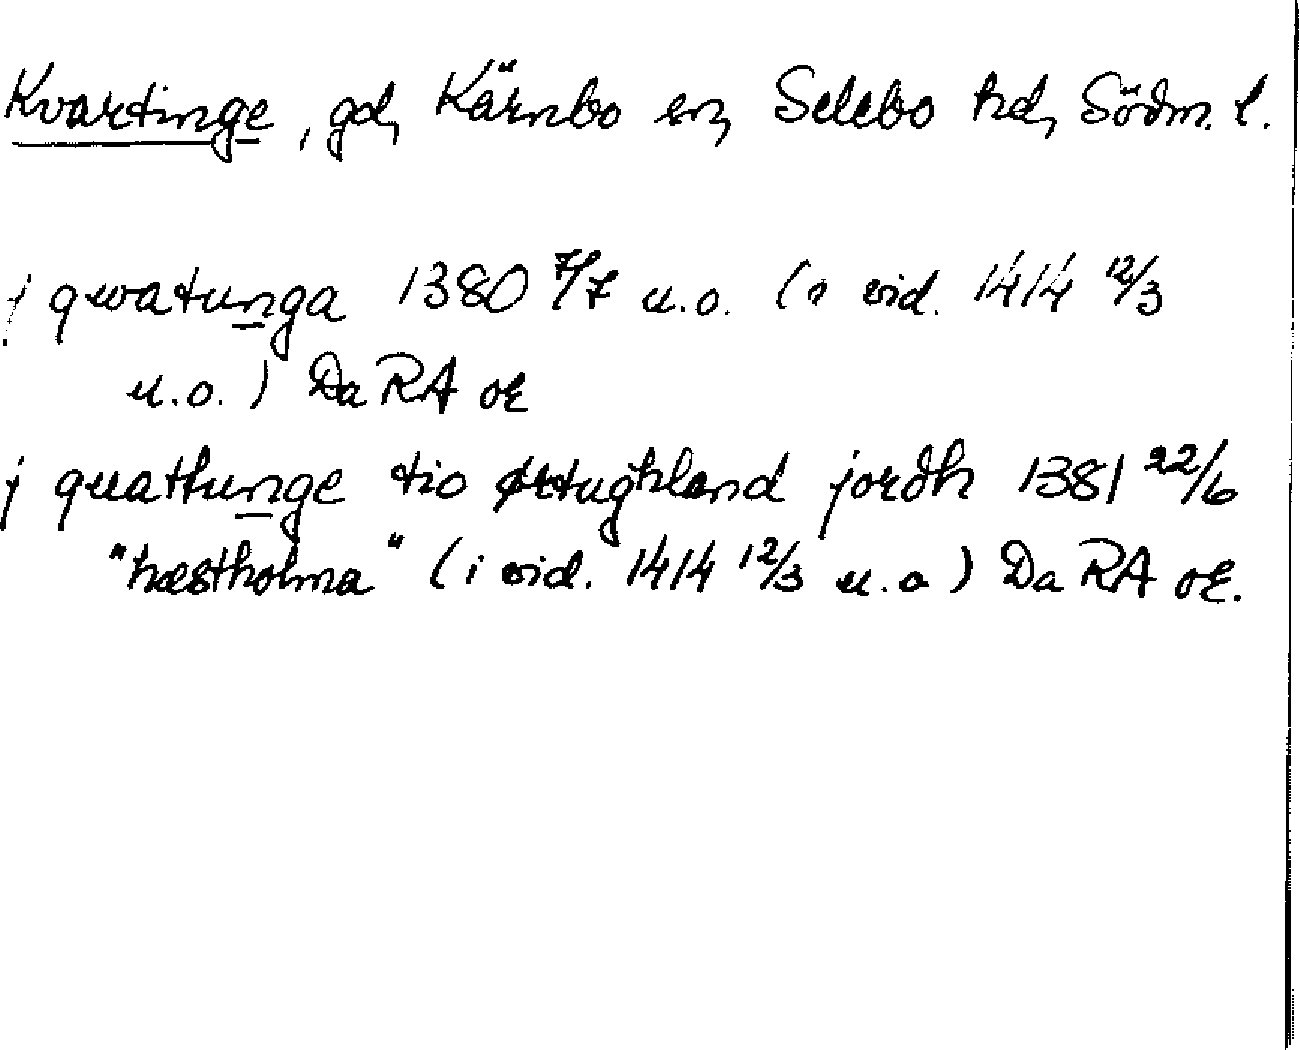 Kvartinge, gd, Kärnbo sn, Selebo hd, Södm. l.
j qwatunga 1380 7/7 u.o. (i vid. 1414 12/3
u.o.) Da RA or
j quathunge tio ørtughland jordh 1381 22/6
"hæstholma" (i vid. 1414 12/3 u.o) Da RA or.